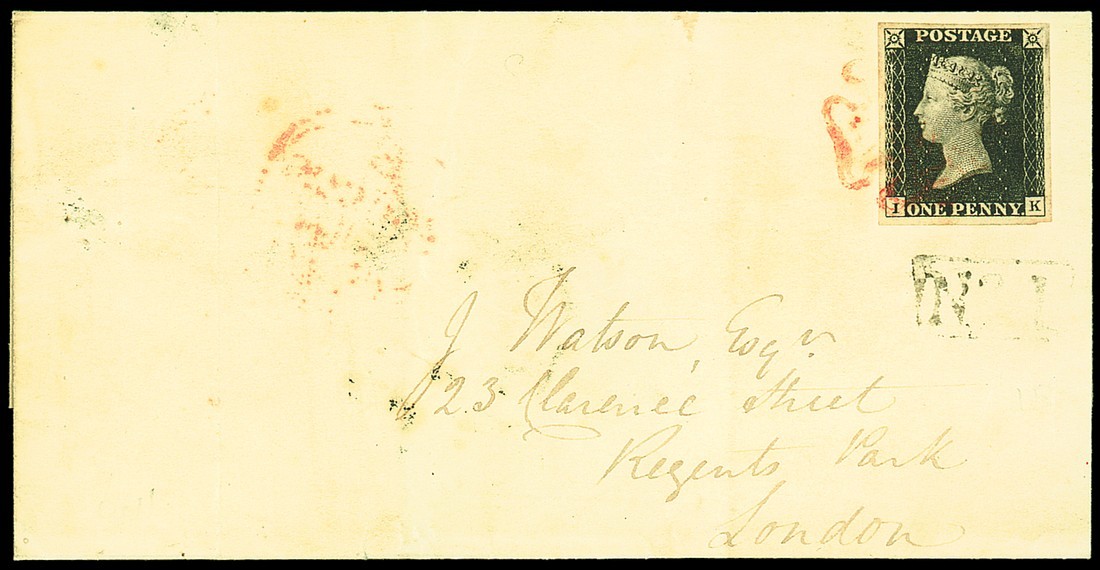 POSTAGE
I ONE PENNY. K
No 1
J Watson, Esqr.
23 Clarence Street
Regents Park
London